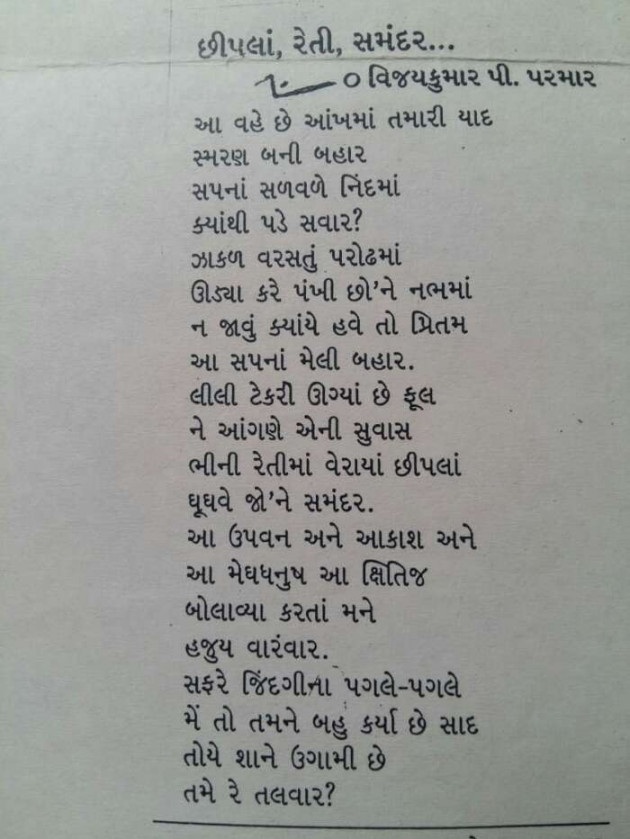 છીપલાં, રેતી, સમંદર...
૦ વિજયકુમાર પી. પરમાર
આ વહે છે આંખમાં તમારી યાદ
સ્મરણ બની બહાર
સપનાં સળવળે નિંદમાં
ક્યાંથી પડે સવાર?
ઝાકળ વરસતું પરોઢમાં
ઊડ્યા કરે પંખી છો'ને નભમાં
ન જાવું ક્યાંયે હવે તો પ્રિતમ
આ સપનાં મેલી બહાર.
લીલી ટેકરી ઊગ્યાં છે ફૂલ
ને આંગણે એની સુવાસ
ભીની રેતીમાં વેરાયાં છીપલાં
ઘૂઘવે જો'ને સમંદર.
આ ઉપવન અને આકાશ અને
આ મેઘધનુષ આ ક્ષિતિજ
બોલાવ્યા કરતાં મને
હજુય વારંવાર.
સફરે જિંદગીના પગલે-પગલે
મેં તો તમને બહુ કર્યા છે સાદ
તોયે શાને ઉગામી છે
તમે રે તલવાર?